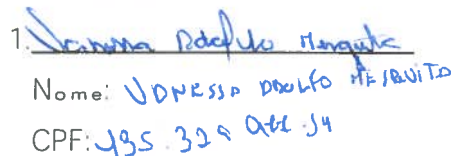 1. Vanessa Adolfo Mesquita
Nome: VANESSA ADOLFO MESQUITA
CPF: